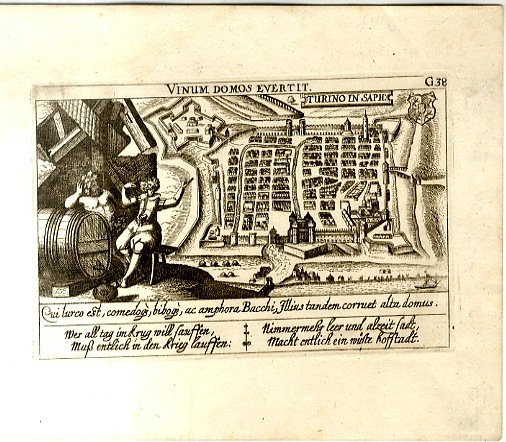 VINUM DOMOS EVERTIT.
G38
TURINO IN SAPH.
Qui lurco est, comedoq₃, biboq₃, ac amphora Bacchi, Illius tandem corruet alta domus.
Wer all tag im Krug will sauffen,
Muß entlich in den Krieg lauffen:
Nimmermehr leer und alzeit satt,
Macht entlich ein wüste hoffstadt.